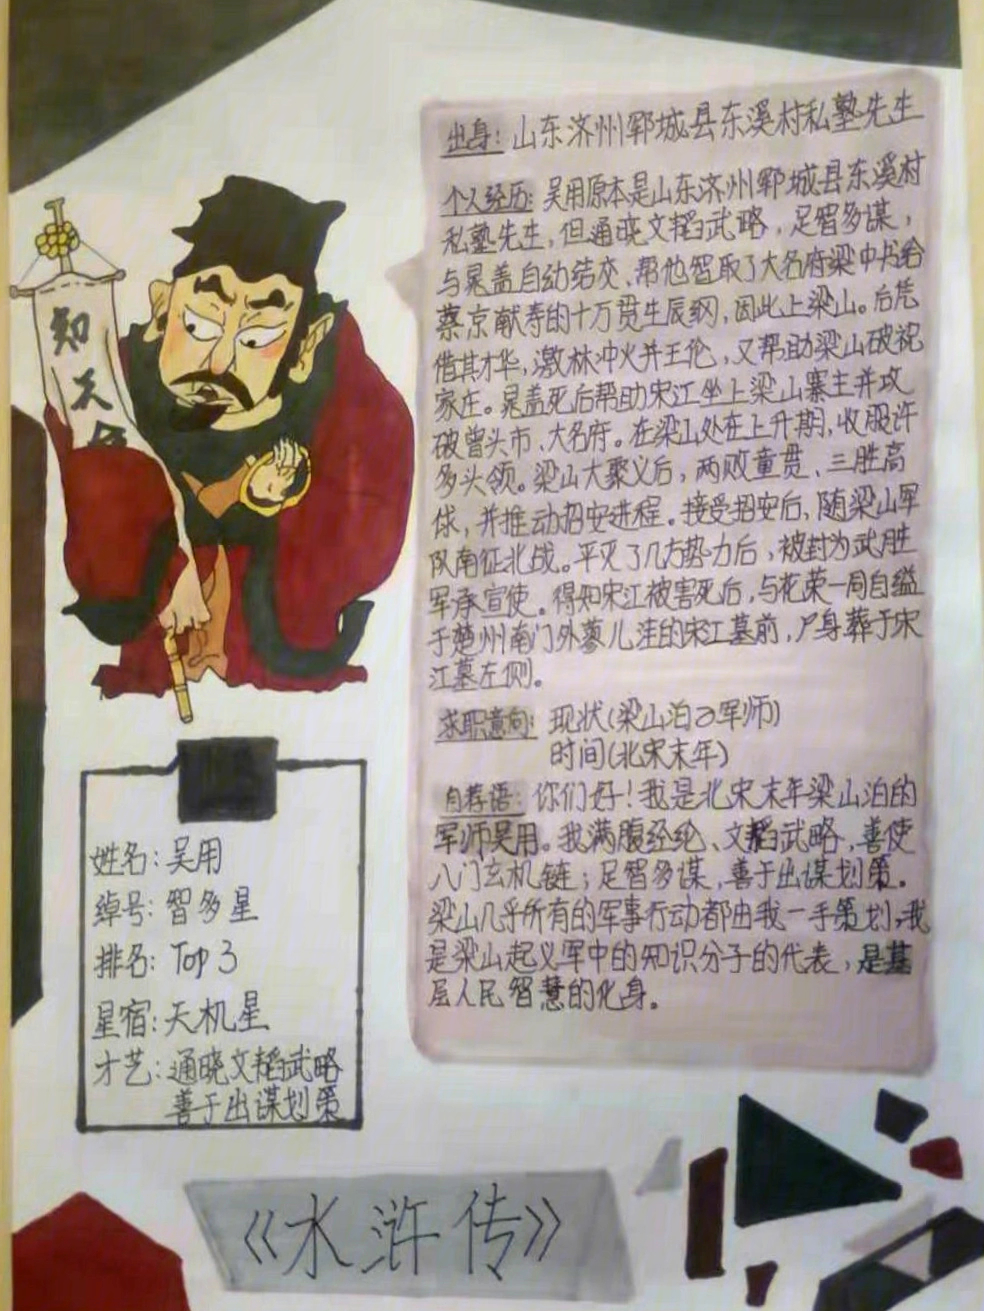 知天命
出身：山东济州郓城县东溪村私塾先生
个人经历：吴用原本是山东济州郓城县东溪村
私塾先生，但通晓文韬武略，足智多谋，
与晁盖自动结交、帮他智取了大名府梁中书给
蔡京献寿的十万贯生辰纲，因此上梁山。后凭
借其才华，激林冲火并王伦，又帮助梁山破祝
家庄。晁盖死后帮助宋江坐上梁山寨主并攻
破曾头市、大名府。在梁山处在上升期，收服许
多头领。梁山大聚义后，两败童贯、三胜高
俅，并推动招安进程。接受招安后，随梁山军
队南征北战。平灭了几方势力后，被封为武胜
军承宣使。得知宋江被害死后，与花荣一同自缢
于楚州南门外蓼儿洼的宋江墓前，尸身葬于宋
江墓左侧。
求职意向：现状(梁山泊的军师)
时间(北宋末年)
自荐语：你们好！我是北宋末年梁山泊的
军师吴用。我满腹经纶、文韬武略，善使
八门玄机链；足智多谋，善于出谋划策。
梁山几乎所有的军事行动都由我一手策划，我
是梁山起义军中的知识分子的代表，是基
层人民智慧的化身。
姓名：吴用
绰号：智多星
排名：Top 3
星宿：天机星
才艺：通晓文韬武略
善于出谋划策
《水浒传》